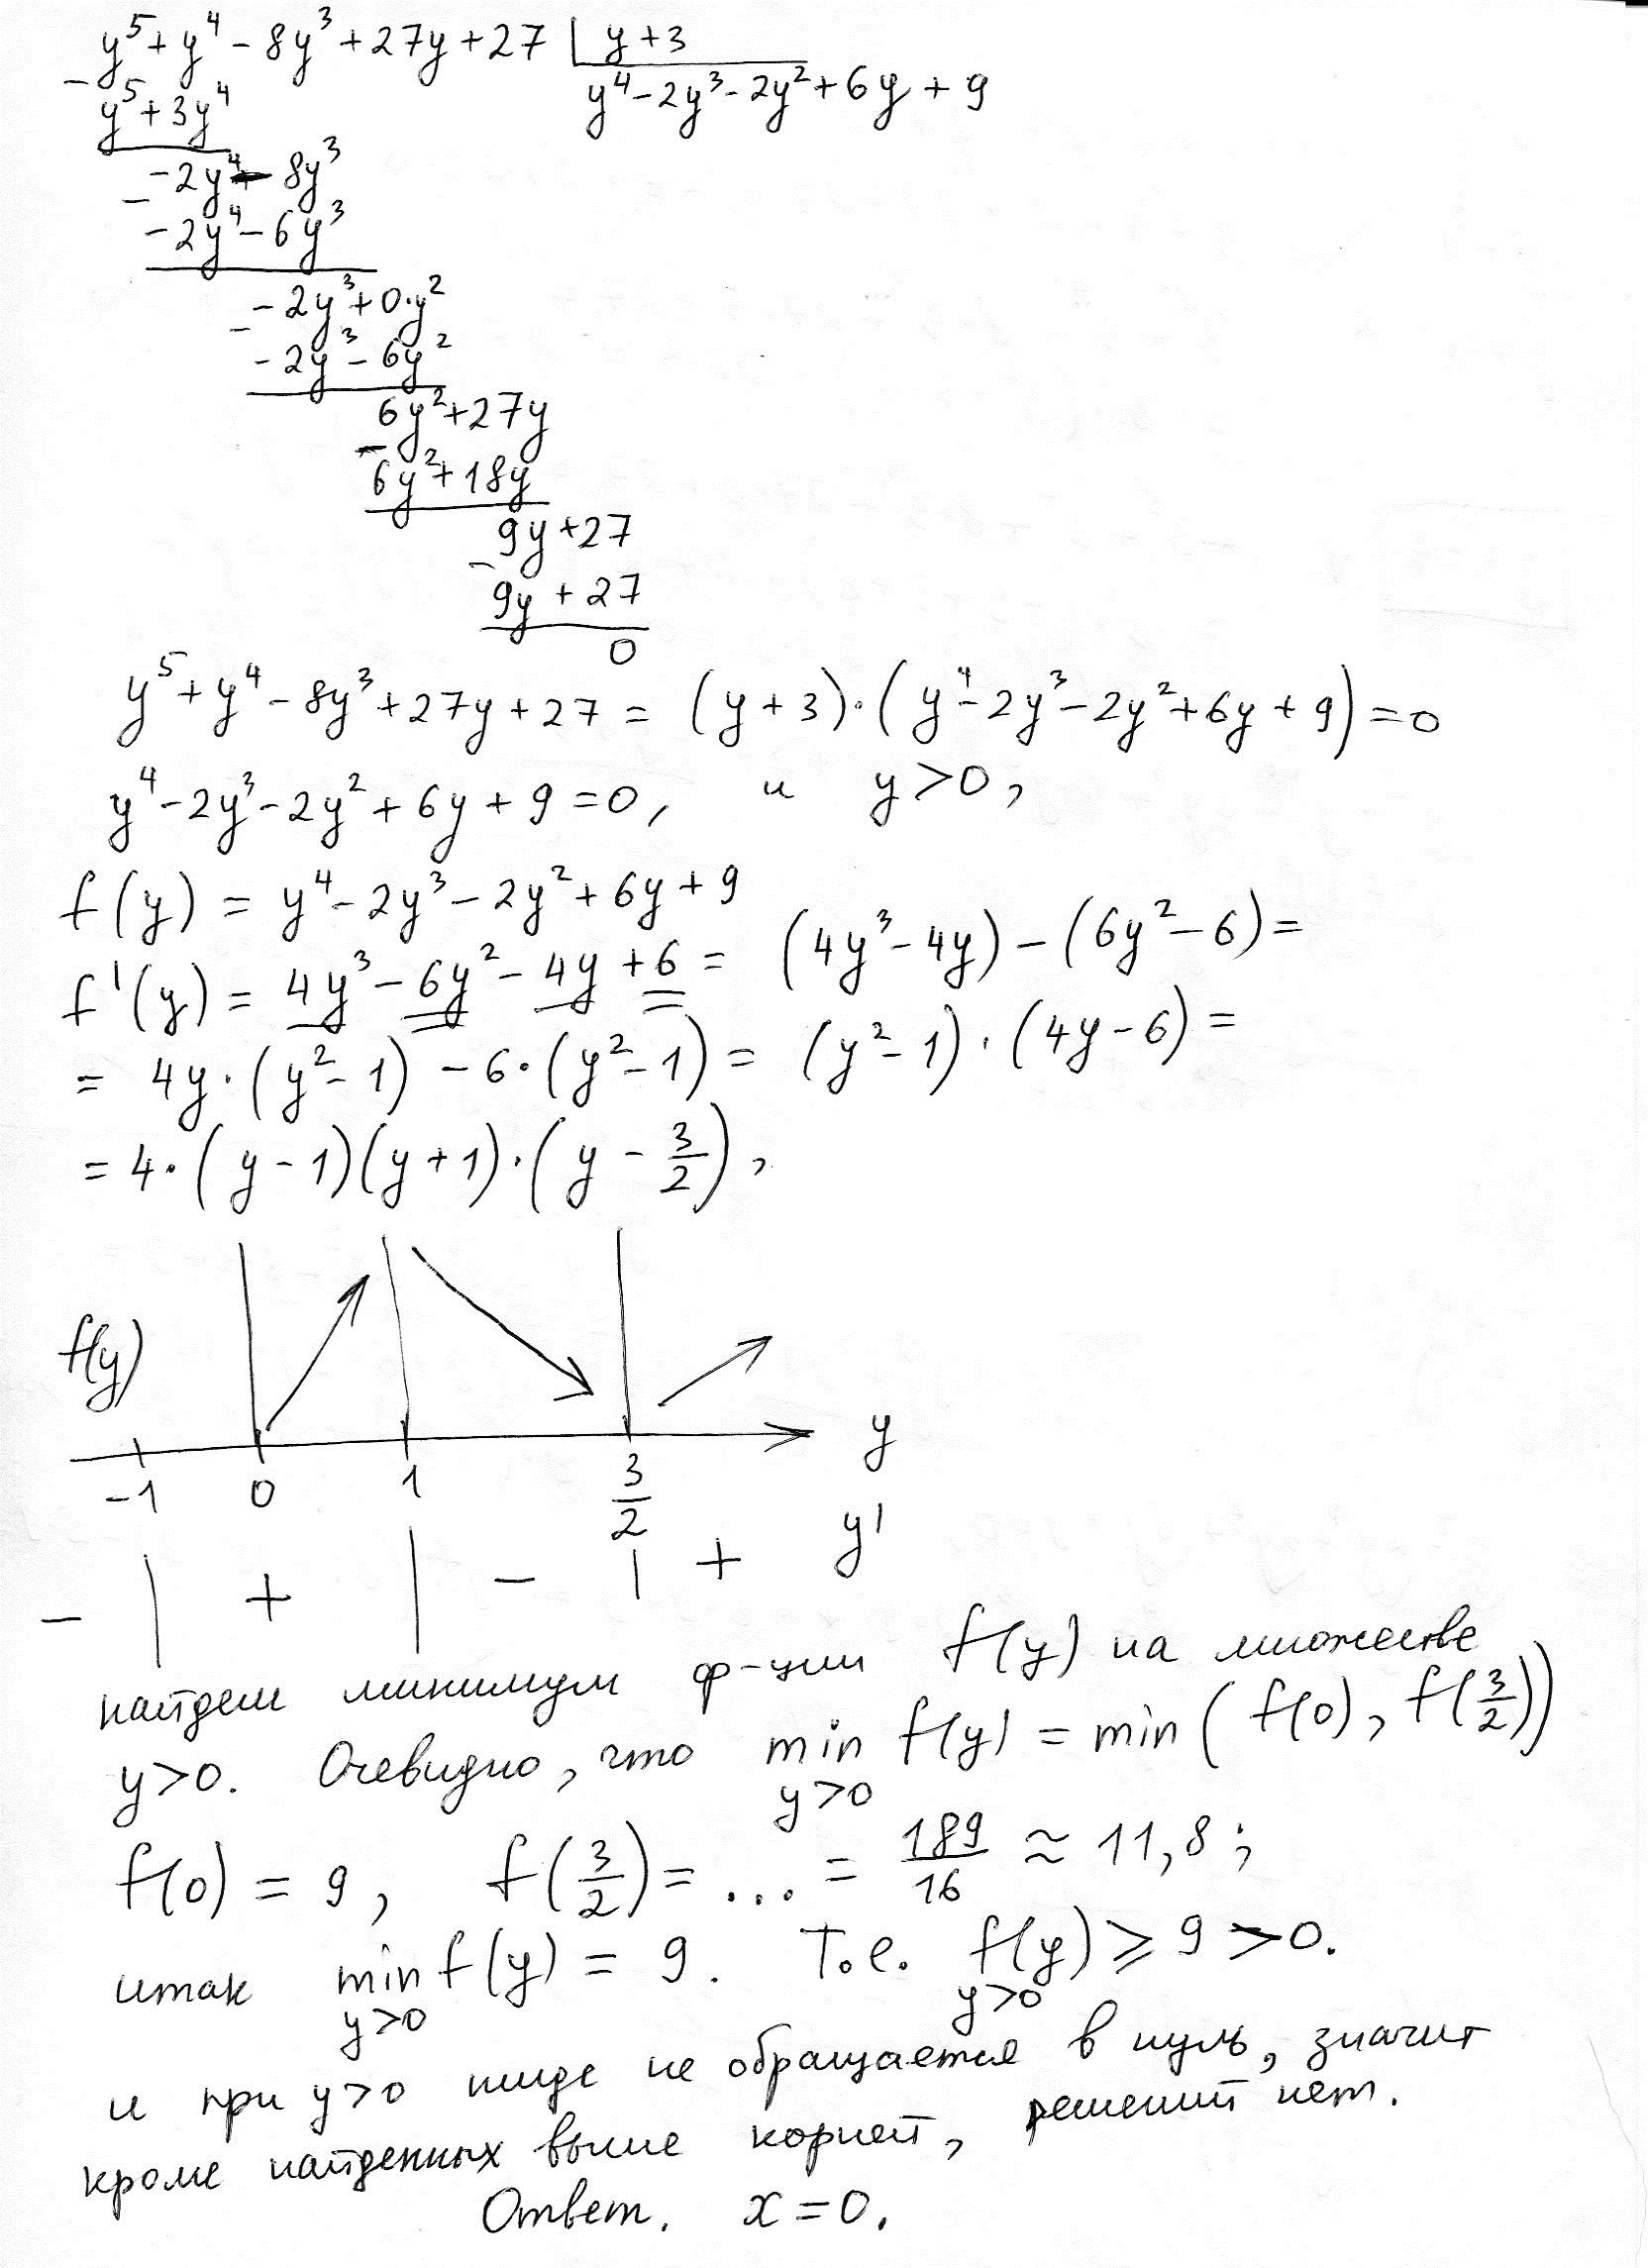 y⁵ + y⁴ - 8y³ + 27y + 27 | y + 3
- y⁵ + 3y⁴ y⁴ - 2y³ - 2y² + 6y + 9
-2y⁴ - 8y³
- -2y⁴ - 6y³
-2y³ + 0·y²
- -2y³ - 6y²
6y² + 27y
- 6y² + 18y
9y + 27
- 9y + 27
0
y⁵ + y⁴ - 8y³ + 27y + 27 = (y + 3)·(y⁴ - 2y³ - 2y² + 6y + 9) = 0
y⁴ - 2y³ - 2y² + 6y + 9 = 0, и y > 0,
f(y) = y⁴ - 2y³ - 2y² + 6y + 9
f'(y) = 4y³ - 6y² - 4y + 6 = (4y³ - 4y) - (6y² - 6) =
= 4y·(y² - 1) - 6·(y² - 1) = (y² - 1)·(4y - 6) =
= 4·(y - 1)(y + 1)·(y - 3/2),
f(y)
-1 0 1 3/2 y
- | + | - | + y'
найдем минимум ф-ции f(y) на множестве
y > 0. Очевидно, что min f(y) = min(f(0), f(3/2))
y > 0
f(0) = 9, f(3/2) = ... = 189/16 ≈ 11,8;
итак min f(y) = 9. Т.е. f(y) ⩾ 9 > 0.
y > 0 y > 0
и при y > 0 нигде не обращается в нуль, значит
кроме найденных выше корней, решений нет.
Ответ. x = 0.